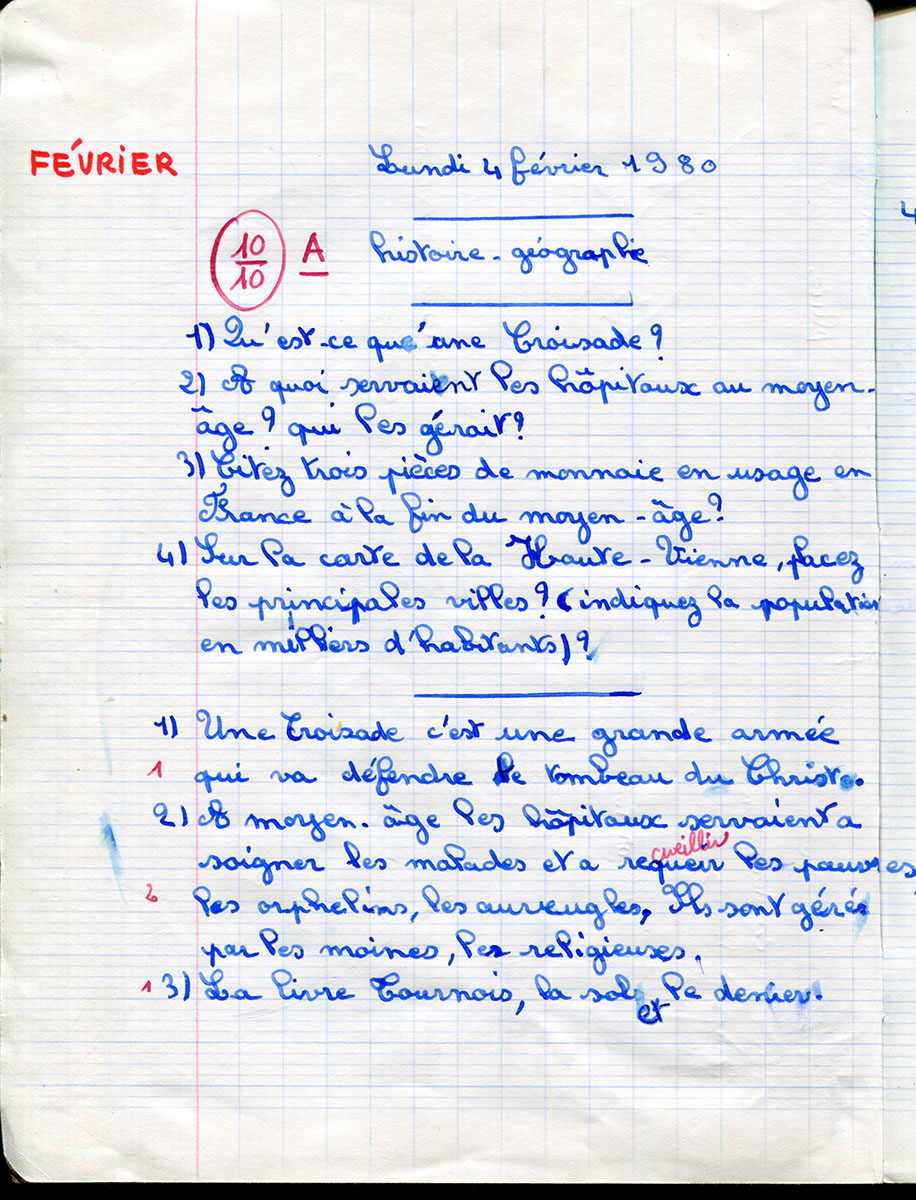 FÉVRIER
Lundi 4 février 1980
10/10 A histoire-géographie
1) Qu'est-ce qu'une Croisade ?
2) A quoi servaient les hôpitaux au moyen-
âge ? qui les gérait ?
3) Citez trois pièces de monnaie en usage en
France à la fin du moyen-âge ?
4) Sur la carte de la Haute-Vienne, placez
les principales villes ? (indiquez la population
en milliers d'habitants) ?
1) Une Croisade c'est une grande armée
1 qui va défendre le tombeau du Christ.
2) A moyen-âge les hôpitaux servaient a
cueillir
soigner les malades et a requeir les pauvres
2 les orphelins, les aureugles, Ils sont gérés
par les moines, les religieuses.
1 3) La livre Tournois, la sol, le denier.
et